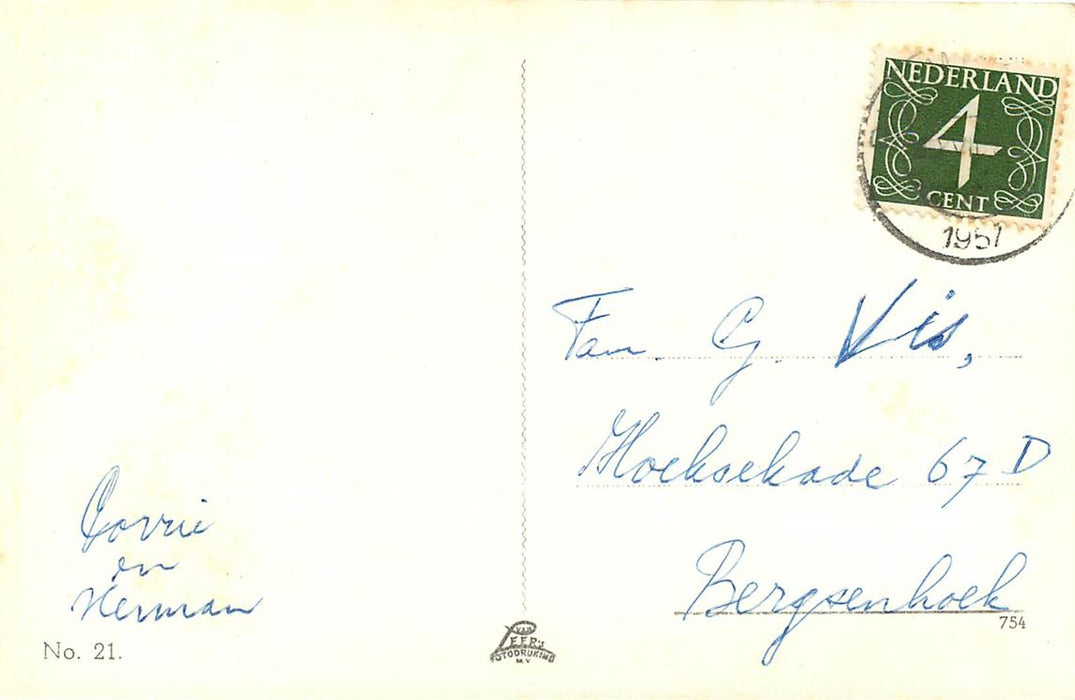 NEDERLAND
4
CENT
1957
Fam. G. Vis,
Hoeksekade 67 D
Bergsenhoek
754
Corrie
en
Herman
No. 21.
VAN
LEER'S
FOTODRUKIND
N.V.